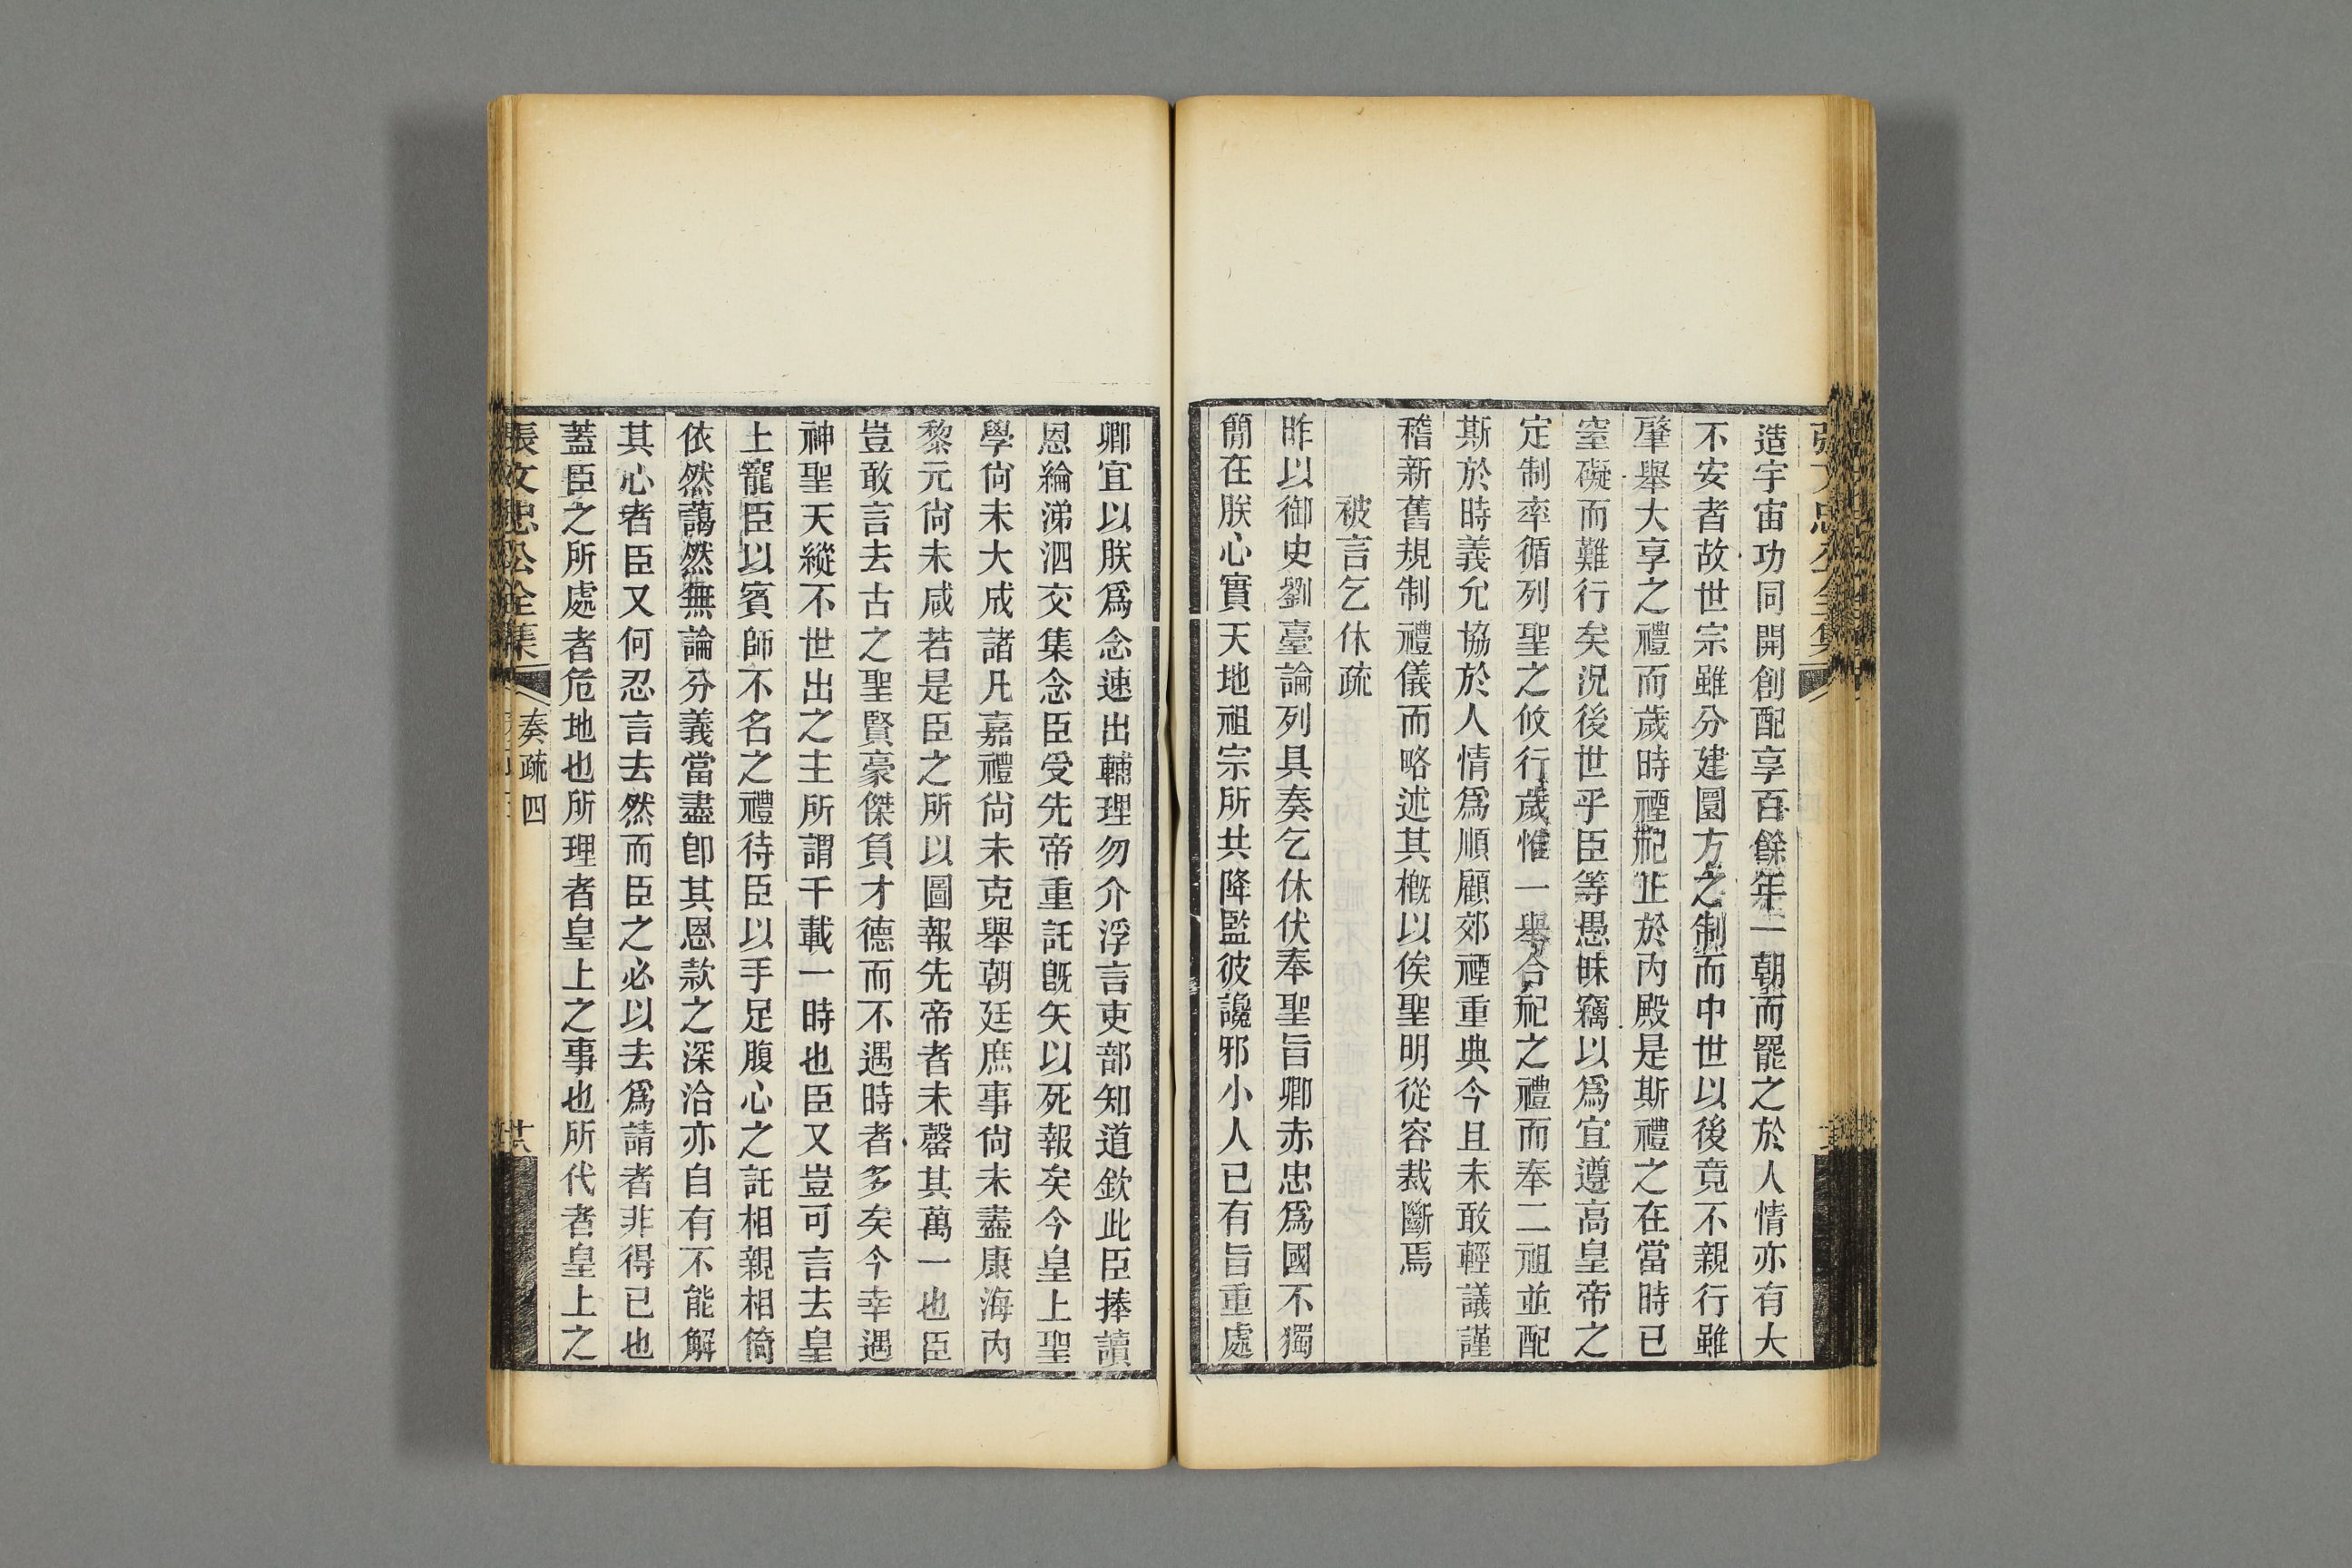 造宇宙功同開創配享百餘年一朝而罷之於人情亦有大
不安者故世宗雖分建圜方之制而中世以後竟不親行雖
肇舉大享之禮而歲時禋祀止於內殿是斯禮之在當時已
窒礙而難行矣況後世乎臣等愚昧竊以為宜遵高皇帝之
定制率循列聖之攸行歲惟一舉合祀之禮而奉二祖並配
斯於時義允協於人情為順顧郊禋重典今且未敢輕議謹
稽新舊規制禮儀而略述其槪以俟聖明從容裁斷焉
被言乞休疏
昨以御史劉臺論列具奏乞休伏奉聖旨卿赤忠為國不獨
簡在朕心實天地祖宗所共降監彼讒邪小人已有旨重處
卿宜以朕爲念速出輔理勿介浮言吏部知道欽此臣捧讀
恩綸涕泗交集念臣受先帝重託旣矢以死報矣今皇上聖
學尙未大成諸凡嘉禮尙未克舉朝廷庶事尙未盡康海內
黎元尙未咸若是臣之所以圖報先帝者未罄其萬一也臣
豈敢言去古之聖賢豪傑負才德而不遇時者多矣今幸遇
神聖天縱不世出之主所謂千載一時也臣又豈可言去皇
上寵臣以賓師不名之禮待臣以手足腹心之託相親相倚
依然藹然無論分義當盡卽其恩款之深洽亦自有不能解
其心者臣又何忍言去然而臣之必以去爲請者非得已也
蓋臣之所處者危地也所理者皇上之事也所代者皇上之
張文忠公全集
奏疏四
廿六